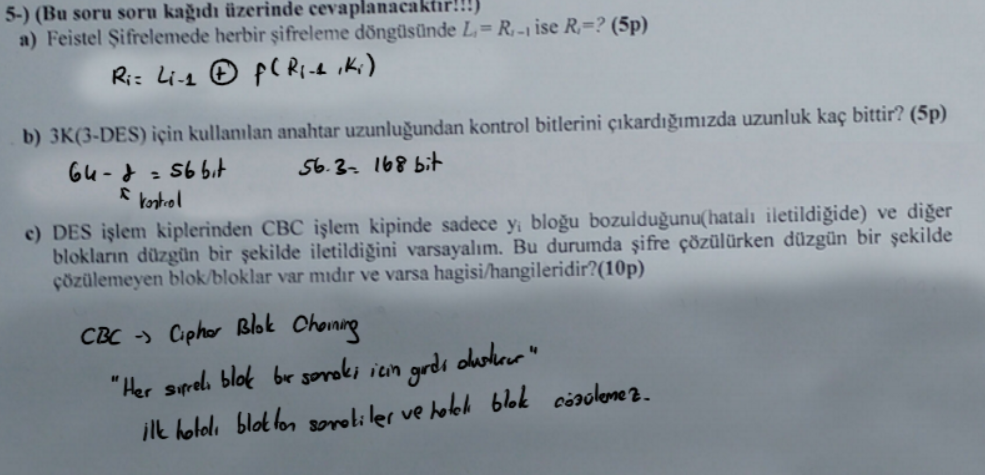 5-) (Bu soru soru kağıdı üzerinde cevaplanacaktır!!!)
a) Feistel Şifrelemede herbir şifreleme döngüsünde Lᵢ = Rᵢ₋₁ ise Rᵢ=? (5p)
Rᵢ = Lᵢ₋₁ ⊕ f(Rᵢ₋₁, Kᵢ)
b) 3K(3-DES) için kullanılan anahtar uzunluğundan kontrol bitlerini çıkardığımızda uzunluk kaç bittir? (5p)
64 - 8 = 56 bit 56.3 = 168 bit
↖ kontrol
c) DES işlem kiplerinden CBC işlem kipinde sadece yᵢ bloğu bozulduğunu(hatalı iletildiğide) ve diğer
blokların düzgün bir şekilde iletildiğini varsayalım. Bu durumda şifre çözülürken düzgün bir şekilde
çözülemeyen blok/bloklar var mıdır ve varsa hagisi/hangileridir?(10p)
CBC → Cipher Blok Chaining
"Her şifreli blok bir sonraki için girdi oluşturur"
ilk hatalı bloktan sonrakiler ve hatalı blok çözülemez.